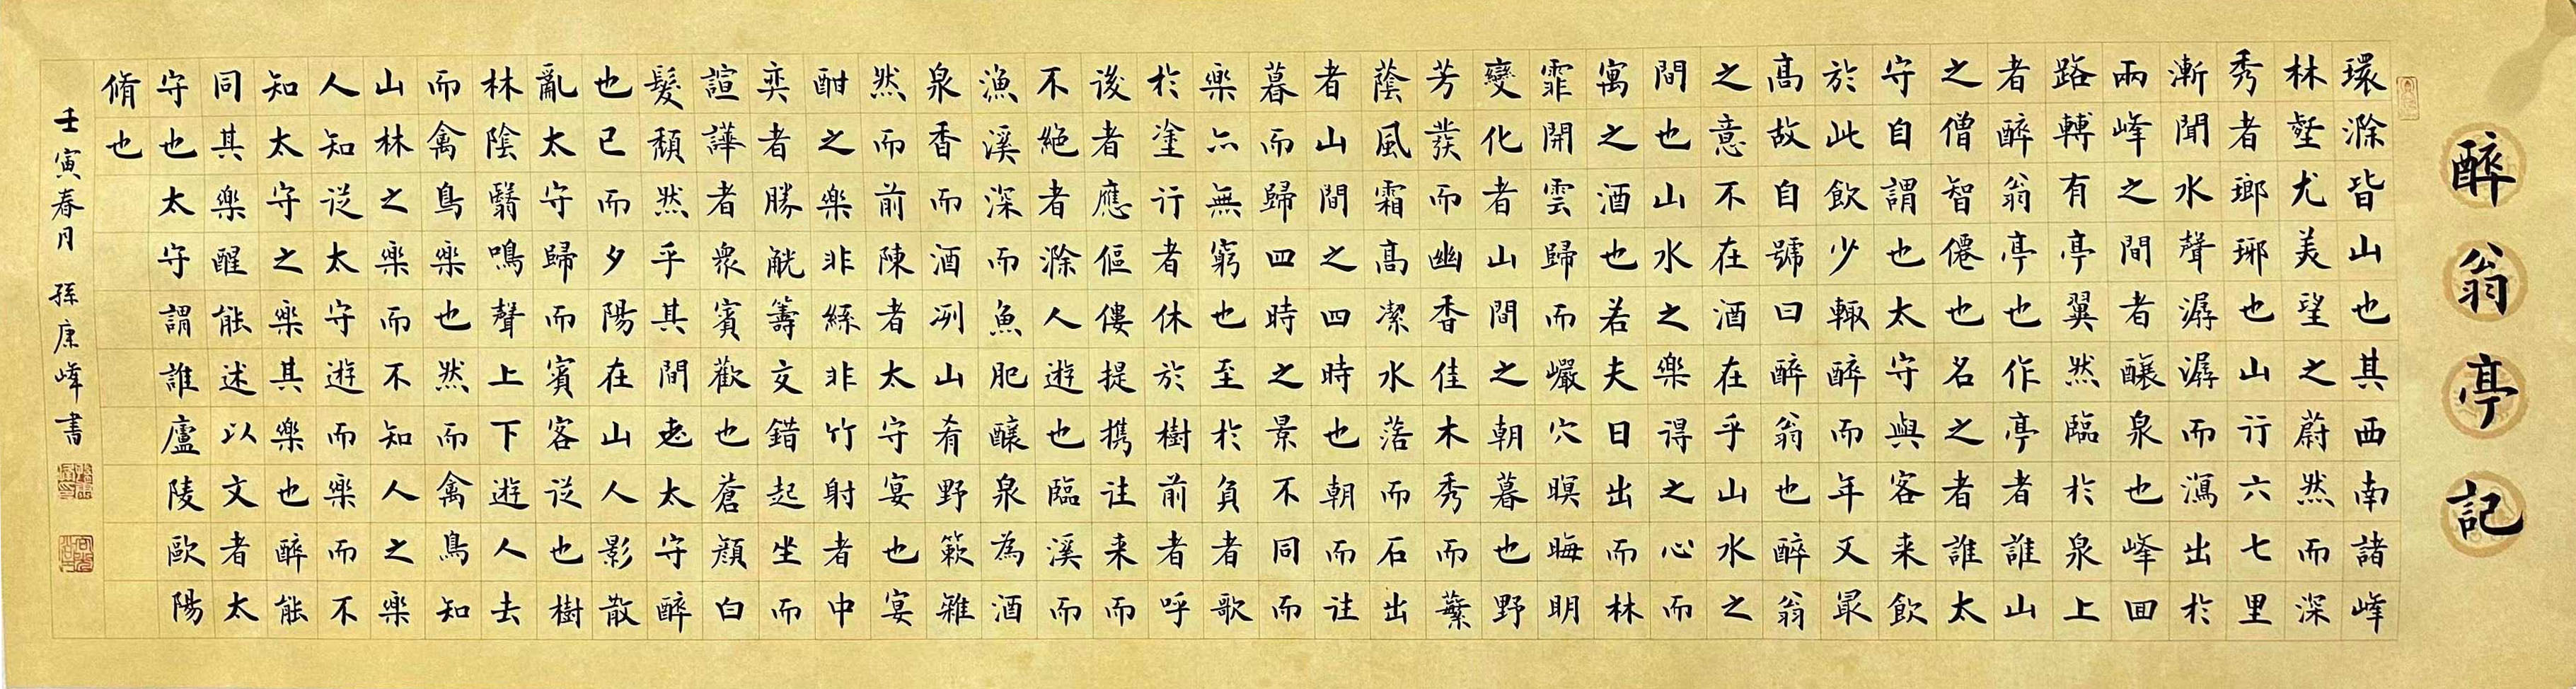 醉翁亭記
環滁皆山也其西南諸峰
林壑尤美望之蔚然而深
秀者瑯琊也山行六七里
漸聞水聲潺潺而瀉出於
兩峰之間者釀泉也峰回
路轉有亭翼然臨於泉上
者醉翁亭也作亭者誰山
之僧智僊也名之者誰太
守自謂也太守與客来飲
於此飲少輒醉而年又最
高故自號曰醉翁也醉翁
之意不在酒在乎山水之
間也山水之樂得之心而
寓之酒也若夫日出而林
霏開雲歸而巖穴暝晦明
變化者山間之朝暮也野
芳發而幽香佳木秀而繁
蔭風霜高潔水落而石出
者山間之四時也朝而往
暮而歸四時之景不同而
樂亦無窮也至於負者歌
於塗行者休於樹前者呼
後者應傴僂提携往来而
不絕者滁人遊也臨溪而
漁溪深而魚肥釀泉為酒
泉香而酒洌山肴野蔌雜
然而前陳者太守宴也宴
酣之樂非絲非竹射者中
奕者勝觥籌交錯起坐而
諠譁者眾賓歡也蒼顏白
髮頹然乎其間老太守醉
也已而夕陽在山人影散
亂太守歸而賓客從也樹
林陰翳鳴聲上下遊人去
而禽鳥樂也然而禽鳥知
山林之樂而不知人之樂
人知從太守遊而樂而不
知太守之樂其樂也醉能
同其樂醒能述以文者太
守也太守謂誰廬陵歐陽
脩也
壬寅春月 孫康峰書